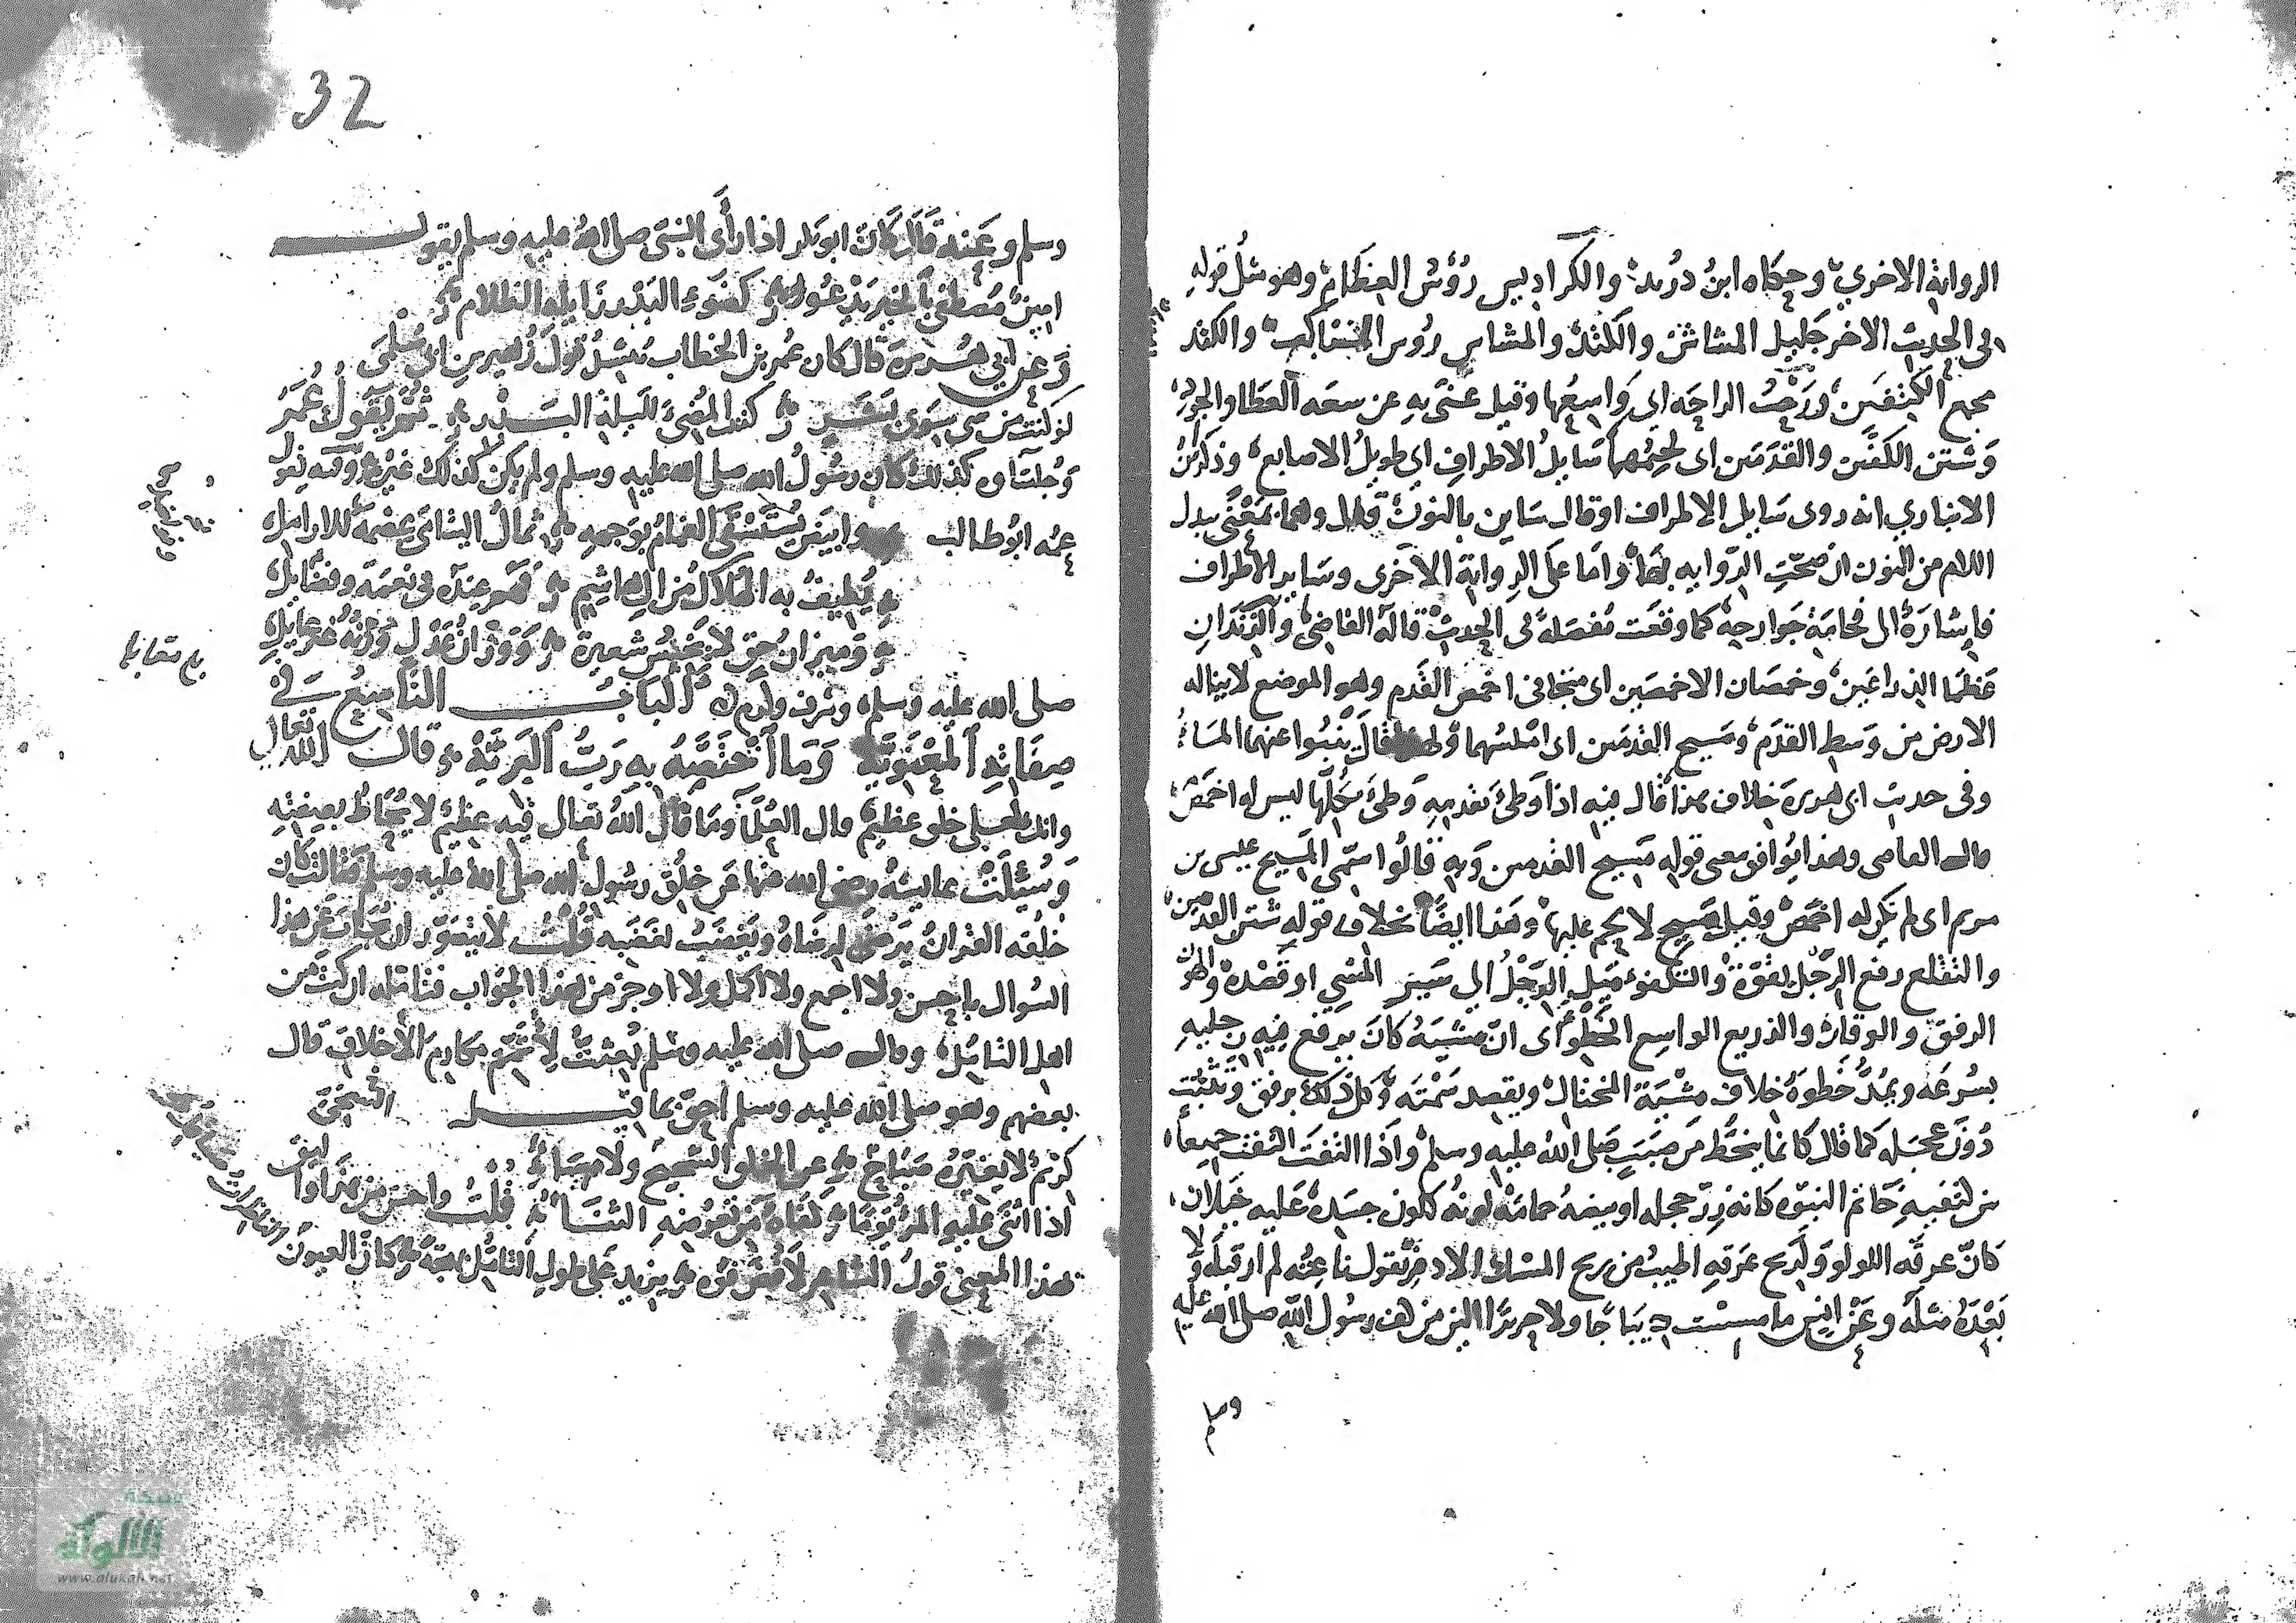 الرواية الاخرى وحكاه ابن دريد والكراديس رؤس العظام وهو مثل قوله
فى الحديث الاخر جليل المشاش والكتد والمشاس روس المناكب والكتد
مجمع الكتفين ورحب الراحه اى واسعها وقيل عنى به عن سعه العطا والجود
وشثن الكفين والقدمين اى لحيمهما سايل الاطراف اى طويل الاصابع وذكر بن
الانبارى انه روى سايل الاطراف او قال ساين بالنون قال وهما بمعنى تبدل
اللام من النون ان صحت الروايه بها واما على الرواية الاخرى وساير الاطراف
فاشارة الى فخامة جوارحه كما وقعت مفصلة فى الحديث قاله القاضى والزندان
عظما الذراعين وخمصان الاخمصين اى متجافى اخمص القدم وهو الموضع لا يناله
الارض من وسط القدم ومسيح القدمين اى املسهما ولهذا قال ينبوا عنهما الماء
وفى حديث ابى هريرة خلاف هذا قال فيه اذا وطئ بقدمه وطئ بكلها ليس له اخمص
قال القاضى وهذا يوافق معنى قوله مسيح القدمين وبه قالوا سمى المسيح عيسى بن
مريم اى لم يكن له اخمص وقيل مسيح لا لحم عليها وهذا ايضا بخلاف قوله شثن القدمين
والتقلع رفع الرجل بقوة والتكفؤ ميل الرجل الى سنن المشى او قصده والهون
الرفق والوقار والذريع الواسع الخطو اى ان مشيه كان يرفع فيه رجليه
بسرعه ويمد خطوه خلاف مشية المختال ويقصد سمته وكل ذلك برفق وتثبت
دون عجله كما قال كانما ينحط من صبب صلى الله عليه وسلم واذا التفت التفت جميعا
بين كتفيه خاتم النبوه كانه زر حجله او بيضه حمامة لونه كلون جسده عليه خيلان
كان عرقه اللولو ولريح عرقه اطيب من ريح المسك الاذفر يقول ناعته لم ار قبله ولا
بعده مثله وعن انس ما مسست ديباجا ولا حريرا الين من كف رسول الله صلى الله عليه
وسلم
32
وسلم وعنه قال كان ابو بكر اذا رأى النبى صلى الله عليه وسلم يقول
امين مصطفى بالخير يدعوا كضوء البدر زايله الظلام
وعن ابى هريرة قال كان عمر بن الخطاب ينشد قول زهير بن ابى سلمى
لو كنت من شى سوى بشر كنت المضئ لليلة البدر ثم يقول عمر
وجلساوه كذلك كان رسول الله صلى الله عليه وسلم ولم يكن كذلك غيره وفيه يقول
عمه ابو طالب وابيض يستسقى الغمام بوجهه ثمال اليتامى عصمة للارامل
يطيف به الهلاك من ال هاشم فهم عنده فى نعمة وفضايل
وميزان حق لا يخيس شعيرة ووزان عدل وزنه غير عايل
بلغ مقابلة
صلى الله عليه وسلم وشرف وكرم الباب التاسع فى
صفاته المعنوية وما اختصه به رب البرية قال الله تعالى
وانك لعلى خلق عظيم قال العلما وما قال الله تعالى فيه عظيم لا يحاط بصفته
وسئلت عايشه رضى الله عنها عن خلق رسول الله صلى الله عليه وسلم فقالت كان
خلقه القران يرضى لرضاه ويغضب لغضبه قلت لا يتصور ان يجاب عن هذا
السوال باحسن ولا اجمع ولا اكمل ولا اوجز من هذا الجواب فتامله ان كنت من
اهل التامل وقال صلى الله عليه وسلم بعثت لاتمم مكارم الاخلاق قال
بعضهم وهو صلى الله عليه وسلم احق بما قيل
كريم لا يغيره صباح عن الخلق السجيح ولا مساء
اذا اثنى عليه المرء يوما كفاه من تعرضه الثناء قلت واحسن من هذا وا ليق
بهذا المعنى قول الشاعر يزيد على طول التامل بهجة كان العيون